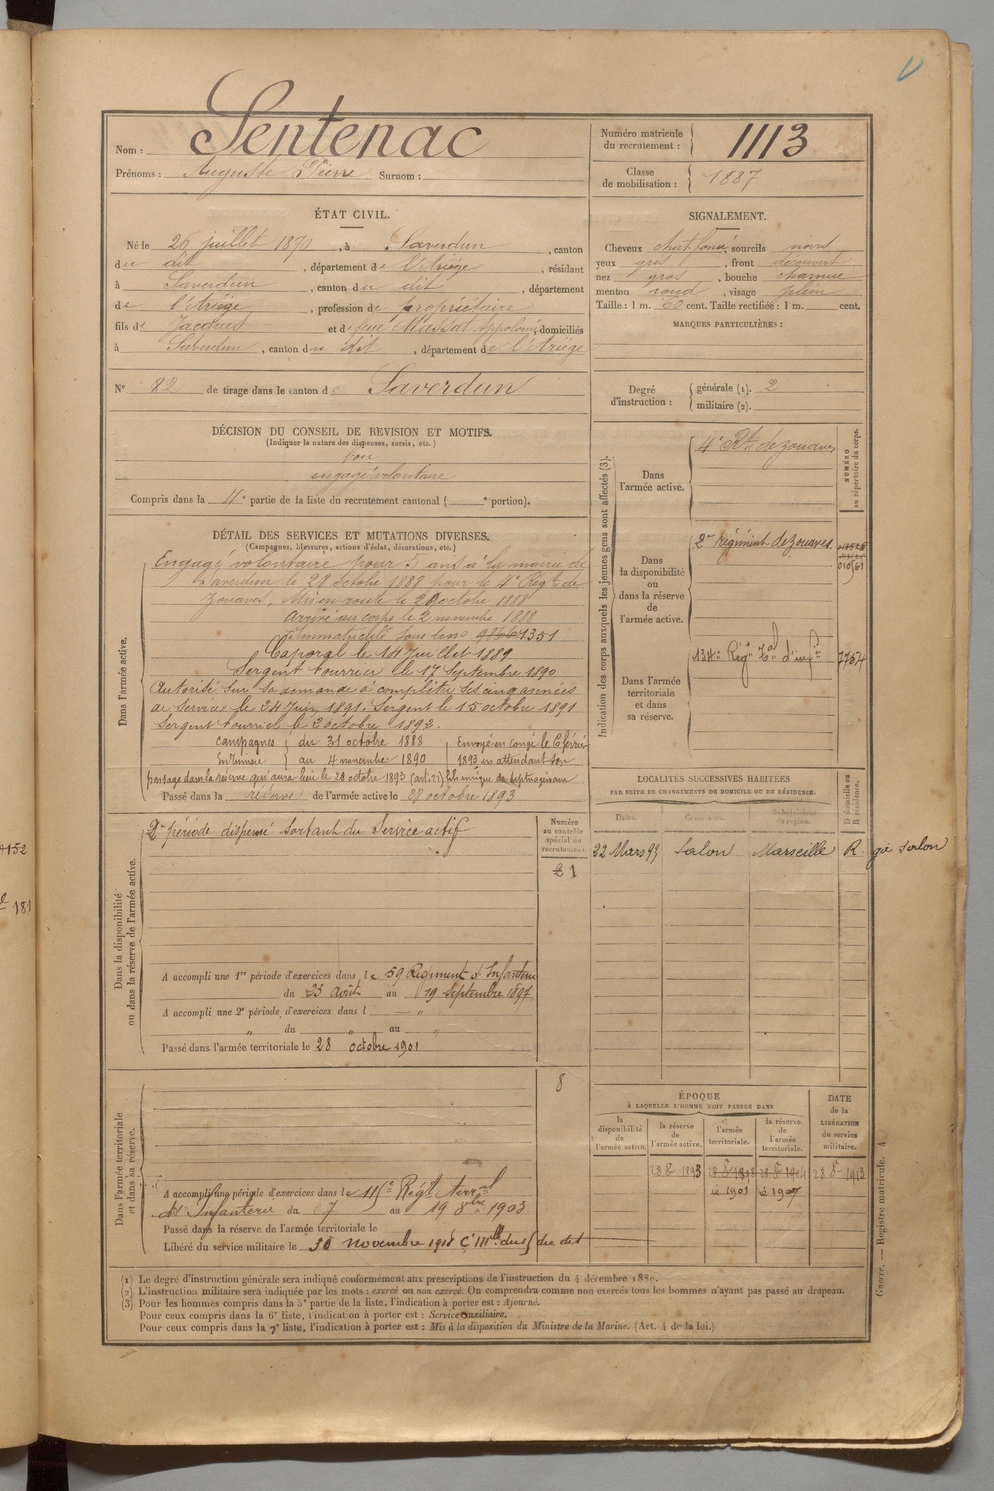 Nom : Sentenac
Prénoms : Auguste Pierre Surnom :
Numéro matricule du recrutement : 1113
Classe de mobilisation : 1887
ÉTAT CIVIL.
Né le 26 juillet 1870, à Saverdun, canton
du dit, département de l'Ariège, résidant
à Saverdun, canton du dit, département
de l'Ariège, profession de propriétaire
fils de Jacques et de feue Massat Appolonie, domiciliés
à Saverdun, canton du dit, département de l'Ariège
N° 82 de tirage dans le canton de Saverdun
SIGNALEMENT.
Cheveux chat. foncé, sourcils noirs
yeux gris, front découvert
nez gros, bouche charnue
menton rond, visage plein
Taille : 1 m. 60 cent. Taille rectifiée : 1 m. cent.
MARQUES PARTICULIÈRES :
Degré d'instruction : générale (1). 2
militaire (2).
DÉCISION DU CONSEIL DE REVISION ET MOTIFS.
(Indiquer la nature des dispenses, sursis, etc.)
bon
engagé volontaire
Compris dans la 4e partie de la liste du recrutement cantonal ( e portion).
DÉTAIL DES SERVICES ET MUTATIONS DIVERSES.
(Campagnes, blessures, actions d'éclat, décorations, etc.)
Dans l'armée active.
Engagé volontaire pour 3 ans à la mairie de
Saverdun le 28 octobre 1888 pour le 4e Régt de
zouaves, Mis en route le 28 octobre 1888
arrivé au corps le 2 novembre 1888
Immatriculé sous le no 1351
Caporal le 14 Juillet 1889
Sergent fourrier le 17 Septembre 1890
Autorisé sur sa demande à compléter ses cinq années
de service le 24 Juin 1891. Sergent le 15 octobre 1891
Sergent fourrier le 2 octobre 1892.
Campagnes du 31 octobre 1888 Envoyé en congé le 6 février
En Tunisie au 4 novembre 1890 1893 en attendant son
passage dans la réserve qui aura lieu le 28 octobre 1893
Passé dans la réserve de l'armée active le 28 octobre 1893
Indication des corps auxquels les jeunes gens sont affectés (3).
NUMÉRO au répertoire du corps.
Dans l'armée active. 4e Rt de zouaves
Dans la disponibilité ou dans la réserve de l'armée active. 2e régiment de zouaves
Dans l'armée territoriale et dans sa réserve. 134e Régt Tal d'infie 7757
Dans la disponibilité ou dans la réserve de l'armée active.
2e période dispensé sortant du Service actif
Numéro au contrôle spécial du recrutement.
A accompli une 1re période d'exercices dans le 59 Régiment d'Infanterie
du 23 Août au 19 Septembre 1897
A accompli une 2e période d'exercices dans l "
" du " au "
Passé dans l'armée territoriale le 28 octobre 1901
LOCALITÉS SUCCESSIVES HABITÉES
PAR SUITE DE CHANGEMENTS DE DOMICILE OU DE RÉSIDENCE.
Dates. Communes. Subdivisions de région. D domicile ou R résidence.
22 Mars 93 Salon Marseille R. gie Salon
Dans l'armée territoriale et dans sa réserve.
8
A accompli une période d'exercices dans le Régt Terral
d'Infanterie du 7 au 19 8bre 1903
Passé dans la réserve de l'armée territoriale le
Libéré du service militaire le 30 novembre 1918
ÉPOQUE
À LAQUELLE L'HOMME DOIT PASSER DANS
la disponibilité de l'armée active. la réserve de l'armée active. l'armée territoriale. la réserve de l'armée territoriale.
DATE de la LIBÉRATION du service militaire.
28 8 1893 28 8 1898 28 8 1904 28 8 1913
à 1901 à 1907
(1) Le degré d'instruction générale sera indiqué conformément aux prescriptions de l'instruction du 4 décembre 1889.
(2) L'instruction militaire sera indiquée par les mots : exercé ou non exercé. On comprendra comme non exercés tous les hommes n'ayant pas passé au drapeau.
(3) Pour les hommes compris dans la 5e partie de la liste, l'indication à porter est : Ajourné.
Pour ceux compris dans la 6e liste, l'indication à porter est : Service auxiliaire.
Pour ceux compris dans la 7e liste, l'indication à porter est : Mis à la disposition du Ministre de la Marine. (Art. 4 de la loi.)
Guerre. — Registre matricule. 4